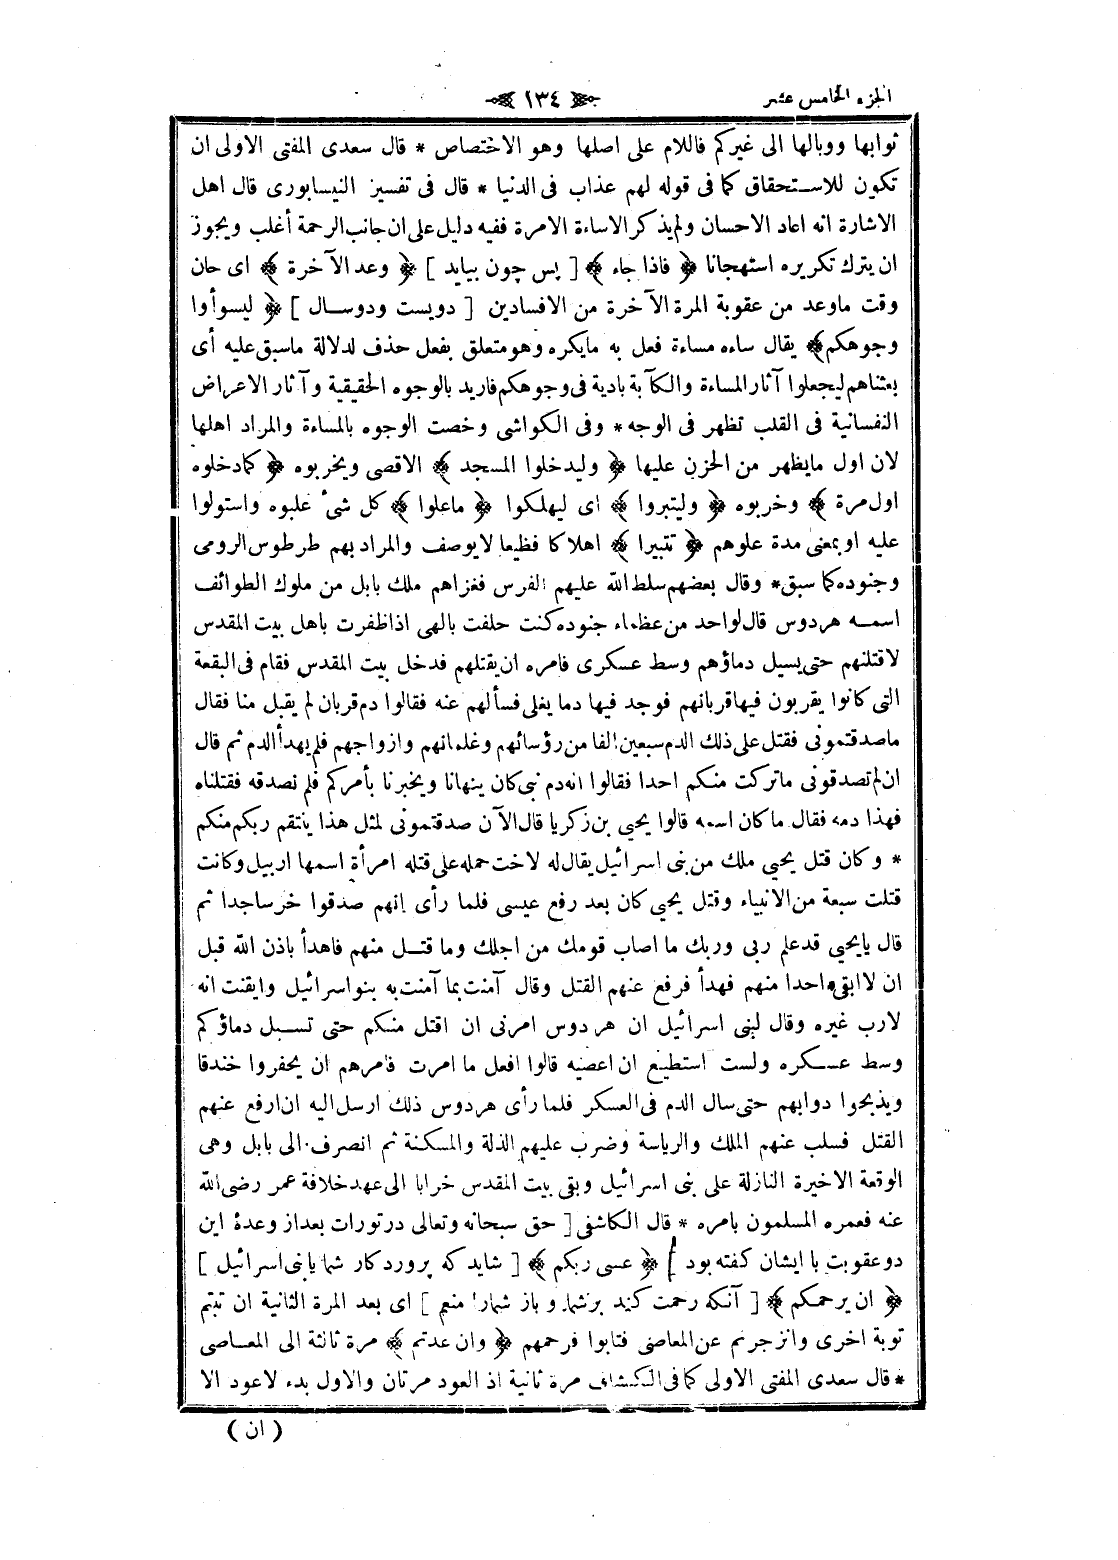 الجزء الخامس عشر
١٣٤
ثوابها ووبالها الى غيركم فاللام على اصلها وهو الاختصاص * قال سعدى المفتى الاولى ان
تكون للاستحقاق كما فى قوله لهم عذاب فى الدنيا * قال فى تفسير النيسابورى قال اهل
الاشارة انه اعاد الاحسان ولم يذكر الاساءة الامرة ففيه دليل على ان جانب الرحمة أغلب ويجوز
ان يترك تكريره استهجانا ﴿ فاذا جاء ﴾ [ پس چون بيايد ] ﴿ وعد الآخرة ﴾ اى حان
وقت ماوعد من عقوبة المرة الآخرة من الافسادين [ دويست ودوسال ] ﴿ ليسوأوا
وجوهكم ﴾ يقال ساءه مساءة فعل به مايكره وهو متعلق بفعل حذف لدلالة ماسبق عليه أى
بعثناهم ليجعلوا آثار المساءة والكآبة بادية فى وجوهكم فاريد بالوجوه الحقيقية وآثار الاعراض
النفسانية فى القلب تظهر فى الوجه * وفى الكواشى وخصت الوجوه بالمساءة والمراد اهلها
لان اول مايظهر من الحزن عليها ﴿ وليدخلوا المسجد ﴾ الاقصى ويخربوه ﴿ كمادخلوه
اول مرة ﴾ وخربوه ﴿ وليتبروا ﴾ اى ليهلكوا ﴿ ماعلوا ﴾ كل شئ غلبوه واستولوا
عليه او بمعنى مدة علوهم ﴿ تتبيرا ﴾ اهلاكا فظيعا لايوصف والمراد بهم طرطوس الرومى
وجنوده كما سبق * وقال بعضهم سلط الله عليهم الفرس فغزاهم ملك بابل من ملوك الطوائف
اسمه هردوس قال لواحد من عظماء جنوده كنت حلفت بالهى اذا ظفرت باهل بيت المقدس
لاقتلنهم حتى يسيل دماؤهم وسط عسكرى فامره ان يقتلهم فدخل بيت المقدس فقام فى البقعة
التى كانوا يقربون فيها قربانهم فوجد فيها دما يغلى فسألهم عنه فقالوا دم قربان لم يقبل منا فقال
ماصدقتمونى فقتل على ذلك الدم سبعين الفا من رؤسائهم وغلمانهم وازواجهم فلم يهدأ الدم ثم قال
ان لم تصدقونى ماتركت منكم احدا فقالوا انه دم نبى كان ينهانا ويخبرنا بأمركم فلم نصدقه فقتلناه
فهذا دمه فقال ماكان اسمه قالوا يحيى بن زكريا قال الآن صدقتمونى لمثل هذا ينتقم ربكم منكم
* وكان قتل يحيى ملك من بنى اسرائيل يقال له لاخت حمله على قتله امرأة اسمها اربيل وكانت
قتلت سبعة من الانبياء وقتل يحيى كان بعد رفع عيسى فلما رأى انهم صدقوا خر ساجدا ثم
قال يايحيى قد علم ربى وربك ما اصاب قومك من اجلك وما قتل منهم فاهدأ باذن الله قبل
ان لاابقى احدا منهم فهدأ فرفع عنهم القتل وقال آمنت بما آمنت به بنو اسرائيل وايقنت انه
لارب غيره وقال لبنى اسرائيل ان هردوس امرنى ان اقتل منكم حتى تسيل دماؤكم
وسط عسكره ولست استطيع ان اعصيه قالوا افعل ما امرت فامرهم ان يحفروا خندقا
ويذبحوا دوابهم حتى سال الدم فى العسكر فلما رأى هردوس ذلك ارسل اليه ان ارفع عنهم
القتل فسلب عنهم الملك والرياسة وضرب عليهم الذلة والمسكنة ثم انصرف الى بابل وهى
الوقعة الاخيرة النازلة على بنى اسرائيل وبقى بيت المقدس خرابا الى عهد خلافة عمر رضى الله
عنه فعمره المسلمون بامره * قال الكاشفى [ حق سبحانه وتعالى در تورات بعداز وعدۀ اين
دو عقوبت با ايشان كفته بود ] ﴿ عسى ربكم ﴾ [ شايد كه پروردكار شما يابنى اسرائيل ]
﴿ ان يرحمكم ﴾ [ آنكه رحمت كند برشما وباز شمارا منعم ] اى بعد المرة الثانية ان تبتم
توبة اخرى وانزجرتم عن المعاصى فتابوا فرحمهم ﴿ وان عدتم ﴾ مرة ثالثة الى المعاصى
* قال سعدى المفتى الاولى كما فى الكشاف مرة ثانية اذ العود مرتان والاول بدء لاعود الا
( ان )